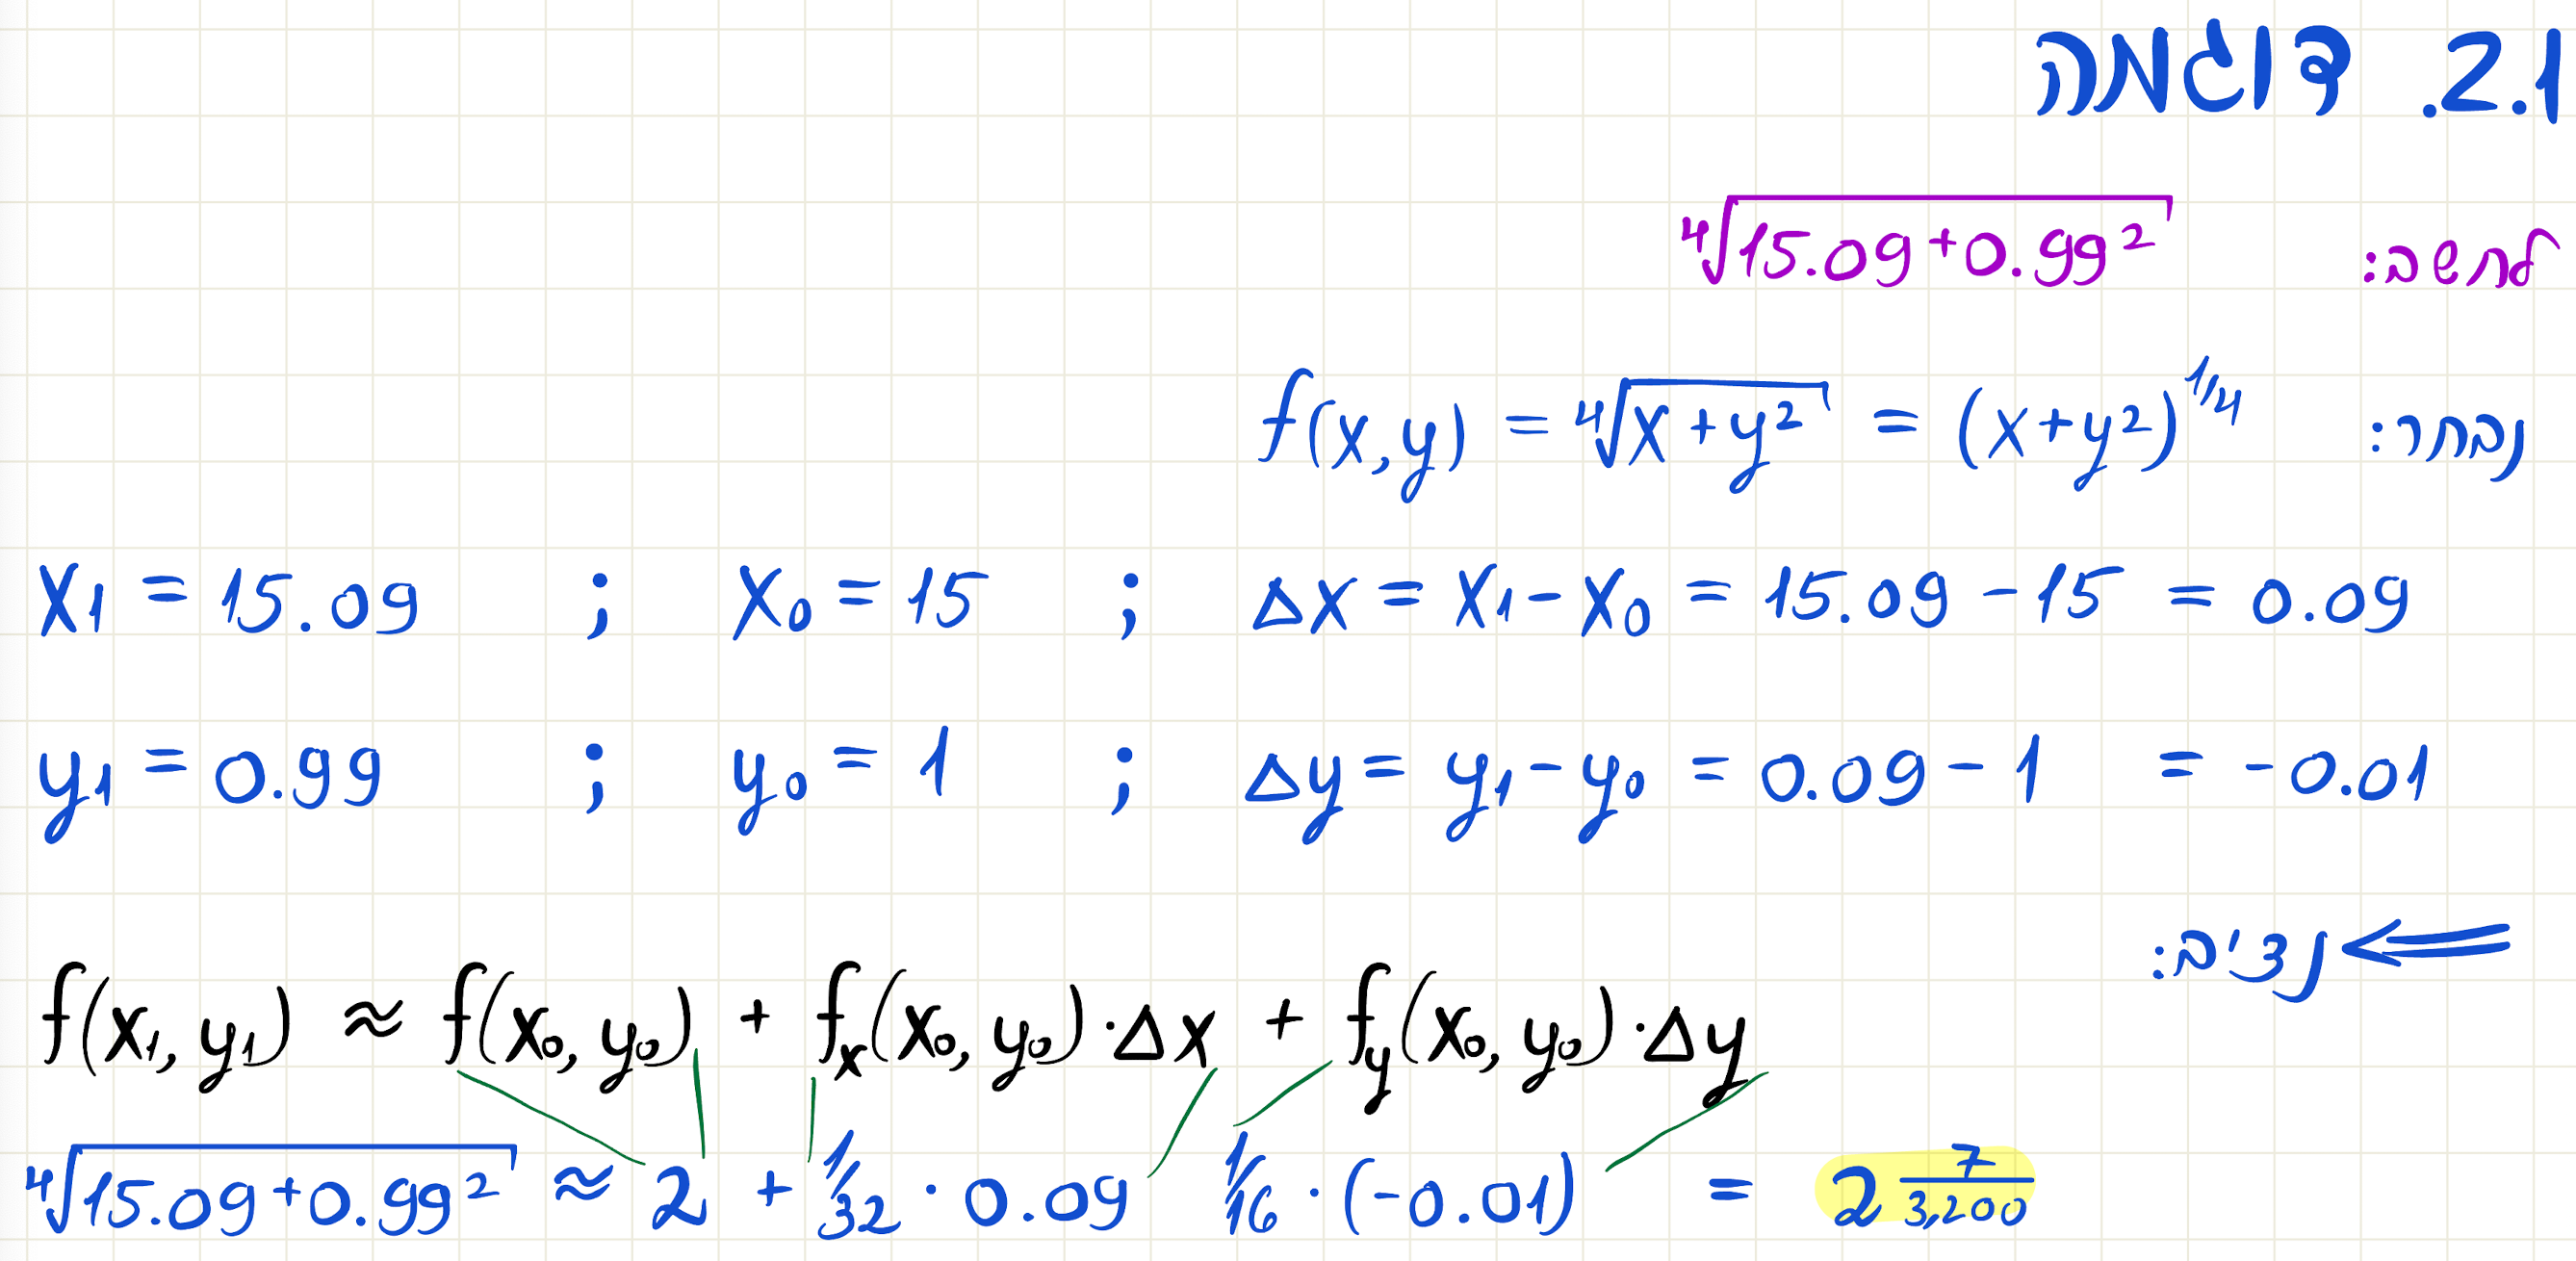 2.1. דוגמה
לחשב: ∜(15.09+0.99²)
נבחר: f(x,y) = ∜(x+y²) = (x+y²)^1/4
x₁ = 15.09 ; x₀ = 15 ; Δx = x₁-x₀ = 15.09-15 = 0.09
y₁ = 0.99 ; y₀ = 1 ; Δy = y₁-y₀ = 0.09-1 = -0.01
⟸ נציב:
f(x₁,y₁) ≈ f(x₀,y₀) + fₓ(x₀,y₀)·Δx + f_y(x₀,y₀)·Δy
∜(15.09+0.99²) ≈ 2 + 1/32 · 0.09 1/16 · (-0.01) = 2 7/3,200